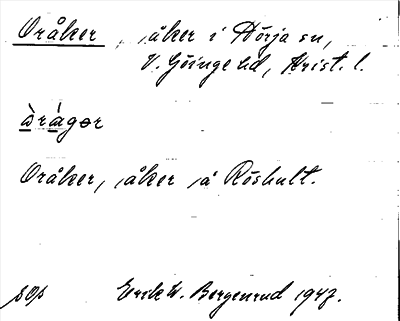 Oråker, åker i Hörja sn,
V. Göinge hd, Krist. l.
òrágər
Oråker, åker på Röshult.
sop Erik W. Bergenrud 1947.